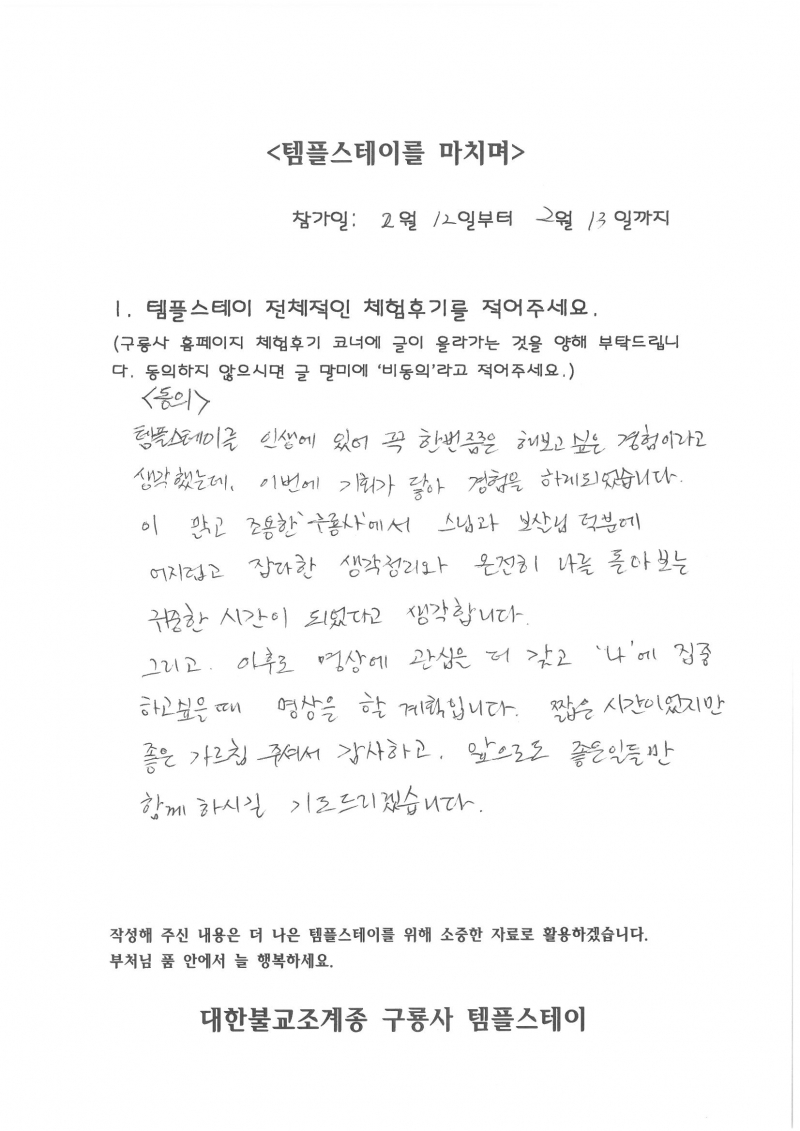 <템플스테이를 마치며>
참가일: 2월 12일부터 2월 13일까지
1. 템플스테이 전체적인 체험후기를 적어주세요.
(구룡사 홈페이지 체험후기 코너에 글이 올라가는 것을 양해 부탁드립니
다. 동의하지 않으시면 글 말미에 '비동의'라고 적어주세요.)
<동의>
템플스테이를 인생에 있어 꼭 한번쯤은 해보고 싶은 경험이라고
생각했는데, 이번에 기회가 닿아 경험을 하게되었습니다.
이 맑고 조용한 '구룡사'에서 스님과 보살님 덕분에
어지럽고 잡다한 생각정리와 온전히 나를 돌아보는
귀중한 시간이 되었다고 생각합니다.
그리고. 이후로 명상에 관심을 더 갖고 '나'에 집중
하고싶을때 명상을 할 계획입니다. 짧은 시간이었지만
좋은 가르침 주셔서 감사하고, 앞으로도 좋은일들만
함께 하시길 기도드리겠습니다.
작성해 주신 내용은 더 나은 템플스테이를 위해 소중한 자료로 활용하겠습니다.
부처님 품 안에서 늘 행복하세요.
대한불교조계종 구룡사 템플스테이